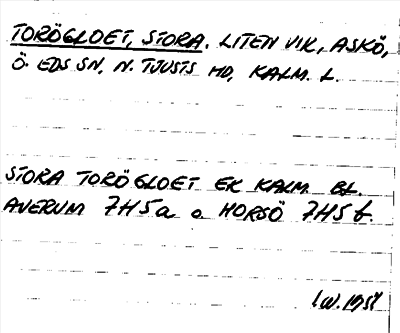 TORÖGLOET, STORA. LITEN VIK, ASKÖ,
Ö. EDS SN, N. TJUSTS HD, KALM. L.
STORA TORÖGLOET EK KALM. BL.
AVERUM 7H5a o HORSÖ 7H5b.